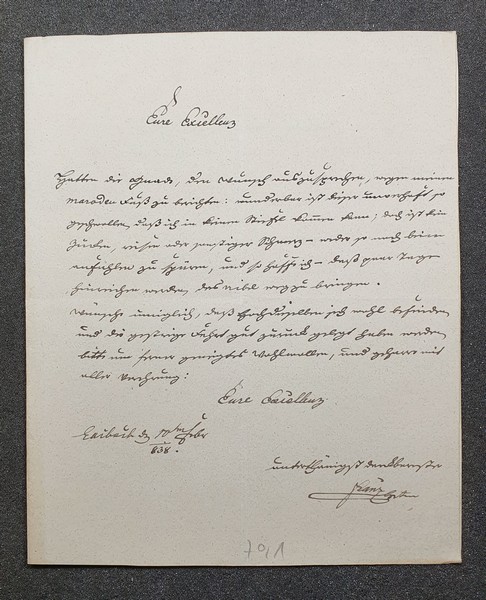 Eure Excellenz
Hatten die Gnade, den Wunsch auszusprechen, wegen meinen
maroden Fuß zu berichten: wunderbar ist dieser unwohl so
geschwollen, daß ich in keinen Stiefel kommen kan; doch ist kein
Zucken, reisen oder sonstiger Schmerz – weder so noch beim
anfühlen zu spüren, und so hoffe ich – daß paar Tage
hinreichen werden, das übel wegzubringen.
Wünsche inniglich, daß Hochdieselben sich wohl befinden
und die gestrige Fahrt gut zurück gelegt haben werden
bitte um ferner geneigtes Wohlwollen, und geharre mit
aller Verehrung:
Eure Excellenz
Laibach den 10ten
838.
unterthänigst der Oberste
Franz